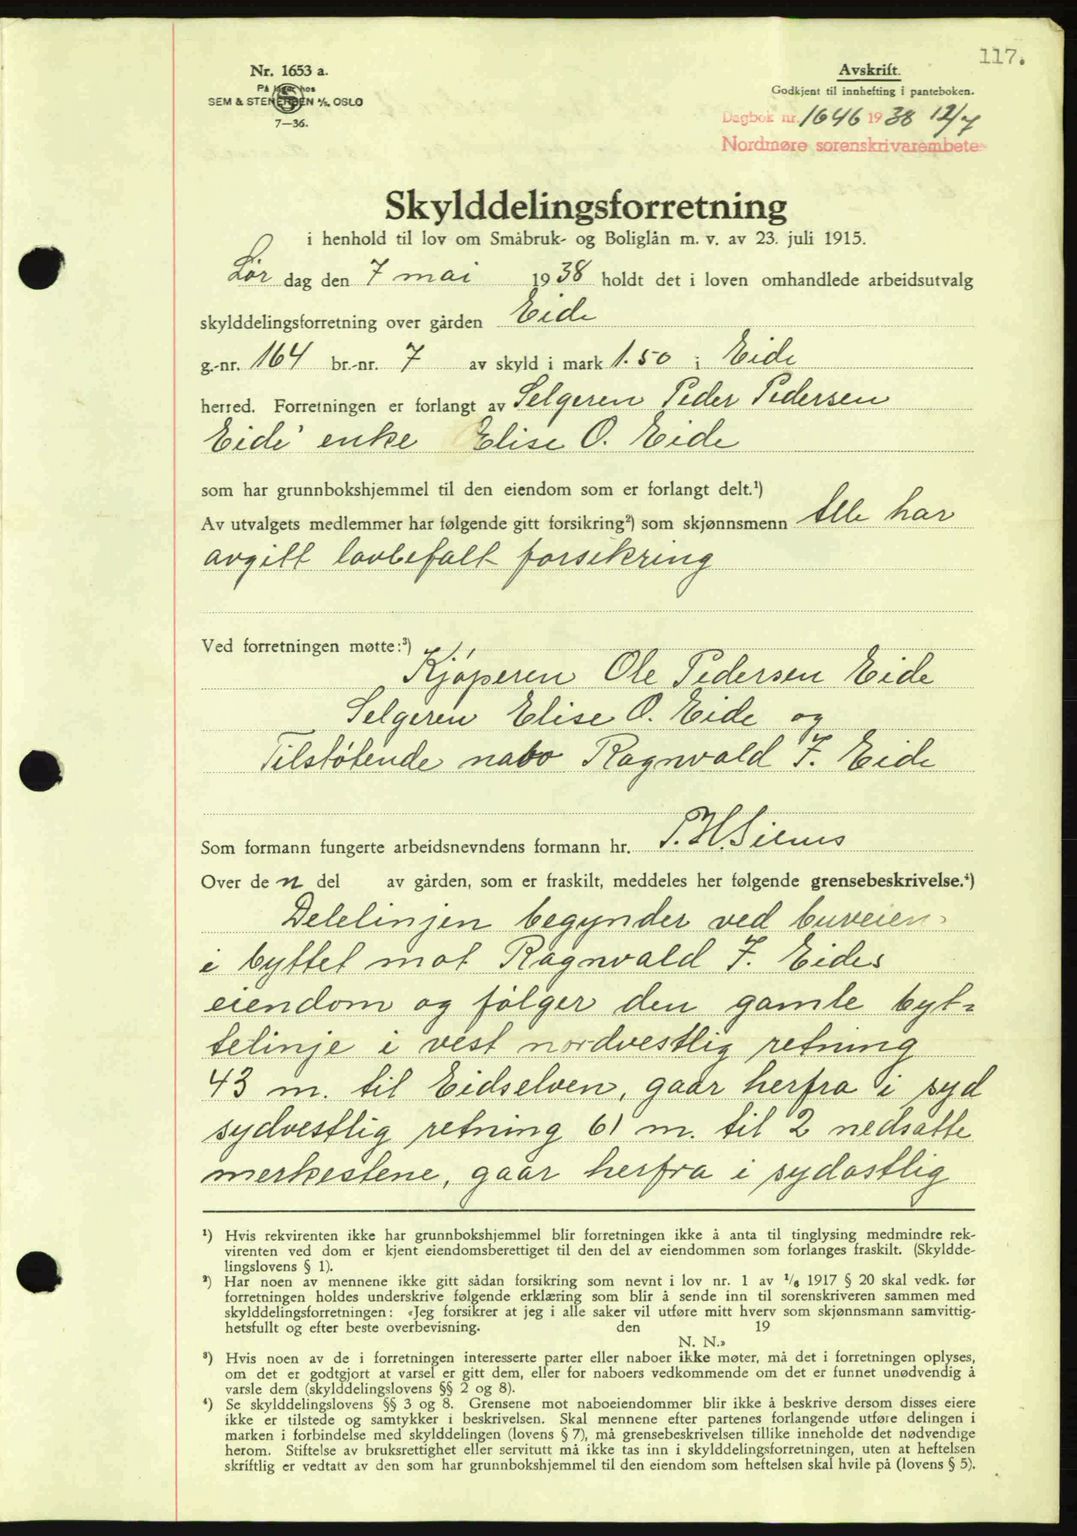 117.
Nr. 1653 a.
På lager hos
SEM & STENERSEN A/S. OSLO
7—36.
Avskrift.
Godkjent til innhefting i panteboken.
Dagbok nr. 1646 1938 12/7
Nordmøre sorenskrivarembete
Skylddelingsforretning
i henhold til lov om Småbruk- og Boliglån m. v. av 23. juli 1915.
Lør dag den 7 mai 1938 holdt det i loven omhandlede arbeidsutvalg
skylddelingsforretning over gården Eide
g.-nr. 164 br.-nr. 7 av skyld i mark 1.50 i Eide
herred. Forretningen er forlangt av Selgeren Peder Pedersen
Eide' enke Elise O. Eide
som har grunnbokshjemmel til den eiendom som er forlangt delt.¹)
Av utvalgets medlemmer har følgende gitt forsikring²) som skjønnsmenn Alle har
avgitt lovbefalt forsikring
Ved forretningen møtte:³)
Kjøperen Ole Pedersen Eide
Selgeren Elise O. Eide og
Tilstøtende nabo Ragnvald F. Eide
Som formann fungerte arbeidsnevndens formann hr. P. H. Silnes
Over de n del av gården, som er fraskilt, meddeles her følgende grensebeskrivelse.⁴)
Delelinjen begynder ved buveien
i byttet mot Ragnvald F. Eides
eiendom og følger den gamle byt=
telinje i vest nordvestlig retning
43 m. til Eidselven, gaar herfra i syd
sydvestlig retning 61 m. til 2 nedsatte
merkestene, gaar herfra i sydøstlig
¹) Hvis rekvirenten ikke har grunnbokshjemmel blir forretningen ikke å anta til tinglysing medmindre rek-
virenten ved dom er kjent eiendomsberettiget til den del av eiendommen som forlanges fraskilt. (Skyldde-
lingslovens § 1).
²) Har noen av mennene ikke gitt sådan forsikring som nevnt i lov nr. 1 av 1/6 1917 § 20 skal vedk. før
forretningen holdes underskrive følgende erklæring som blir å sende inn til sorenskriveren sammen med
skylddelingsforretningen: «Jeg forsikrer at jeg i alle saker vil utføre mitt hverv som skjønnsmann samvittig-
hetsfullt og efter beste overbevisning. den 19
N. N.»
³) Hvis noen av de i forretningen interesserte parter eller naboer ikke møter, må det i forretningen oplyses,
om det er godtgjort at varsel er gitt dem, eller for naboers vedkommende om det er funnet unødvendig å
varsle dem (skylddelingslovens §§ 2 og 8).
⁴) Se skylddelingslovens §§ 3 og 8. Grensene mot naboeiendommer blir ikke å beskrive dersom disses eiere
ikke er tilstede og samtykker i beskrivelsen. Skal mennene efter partenes forlangende utføre delingen i
marken i forbindelse med skylddelingen (lovens § 7), må grensebeskrivelsen tillike inneholde det nødvendige
herom. Stiftelse av bruksrettighet eller servitutt må ikke tas inn i skylddelingsforretningen, uten at heftelsen
skriftlig er vedtatt av den som har grunnbokshjemmel til den eiendom som heftelsen skal hvile på (lovens § 5).